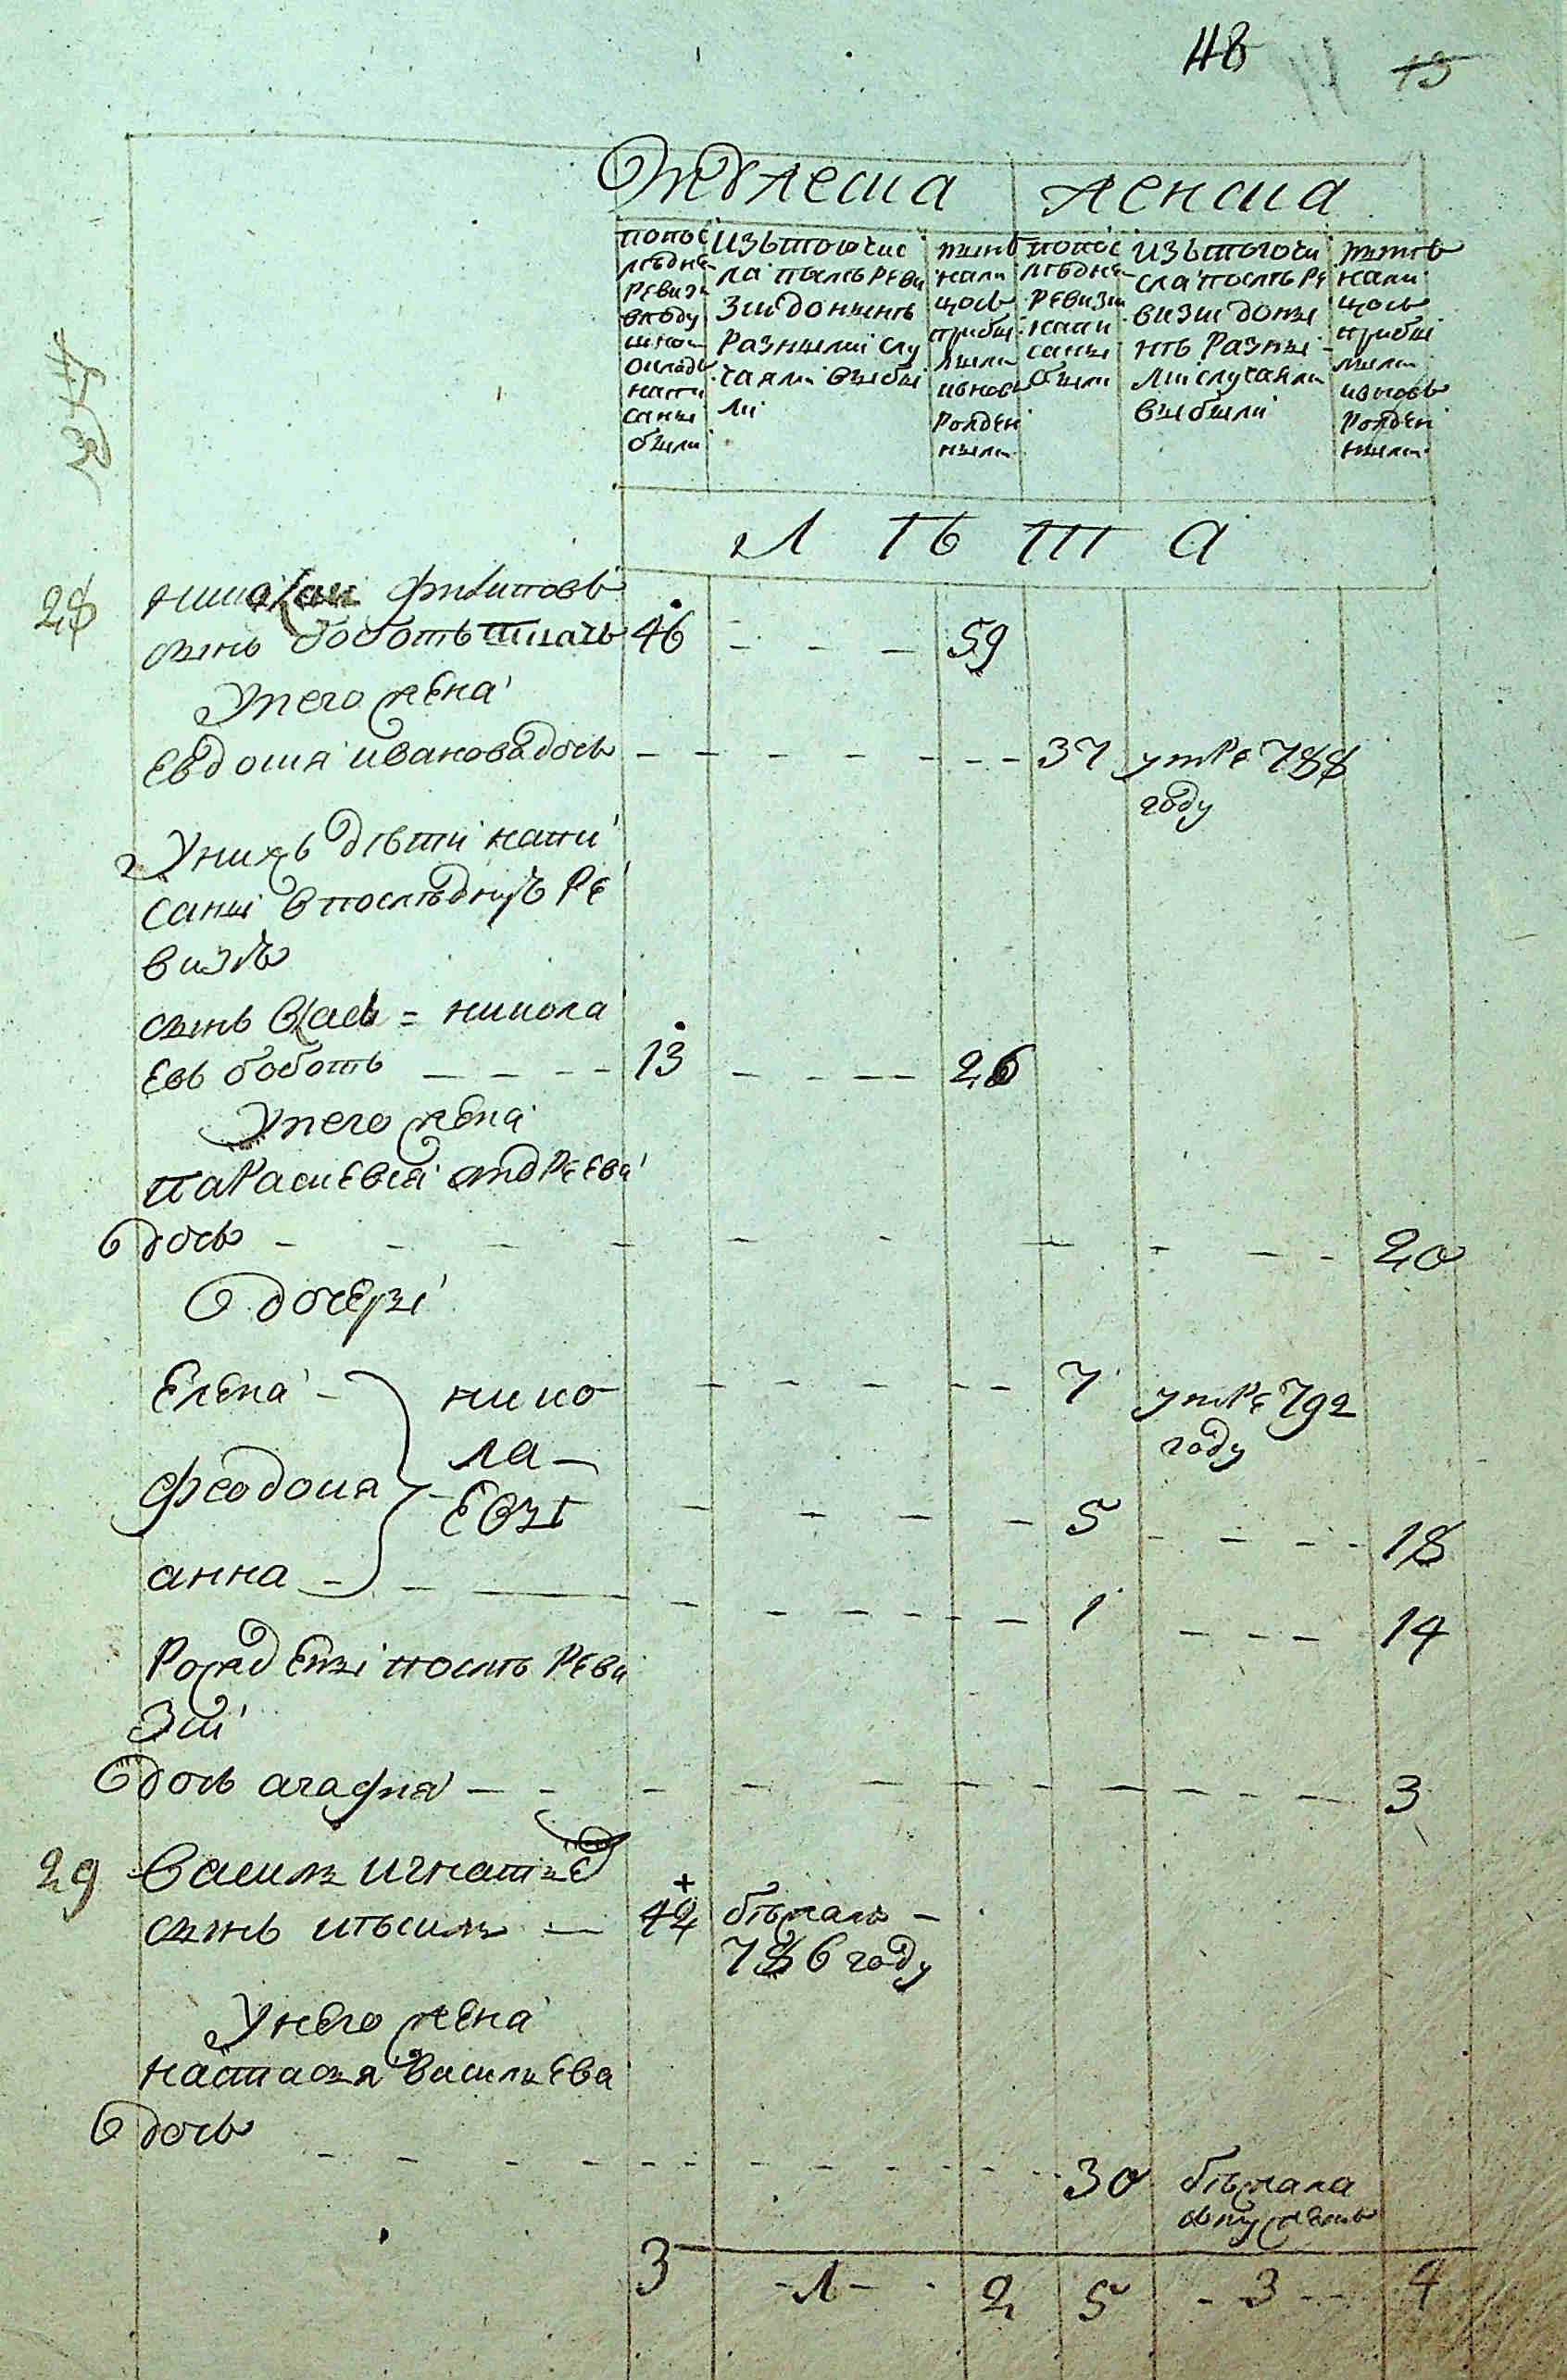 48 15
Мужеска женска
попос
лѣдне
ревизи
вподу
шном
окладѣ
напи
саны
были
изътогочис
ла послѣ реви
зии донынѣ
разными слу
чаями выбы
ли
нынѣ
нали
цось
прибы
лыми
ивновь
рожден
ными
попос
лѣдне
ревизи
напи
саны
были
изътогочи
сла послѣ ре
визии доны
нѣ разны
ми случаями
выбыли
нынѣ
нали
цось
прибы
лыми
ивновь
рожден
ными
Л Ѣ Т А
28 николаи филиповъ
сынъ боботъ ткачь 46 - - - 59
Унего жена
евдокия ивановадочь - - - - - - - 37 умре 788
году
Унихъ дѣти напи
саны впослѣднуь ре
визиь
сынъ власъ = никола
евъ боботъ - - - - 13 - - - - 26
Унего жена
параскевия андреева
дочь - - - - - - - - - - 20
дочеры
Елена - нико - - - - - 7 умре 792
году
ла -
феодосия - евы - - - - 5 - - - - 18
анна - - - - - - - - - 1 - - - 14
Рождены послѣ реви
зии
дочь агафия - - - - - - - - - - - 3
29 Василь игнатьев
сынъ кисиль - 42 бѣжалъ -
786 году
Унего жена
настасья васильева
дочь
- - - - - - - - - - - - 30 бѣжала
смужемь
3 - 1 - - 2 5 - 3 - - 4